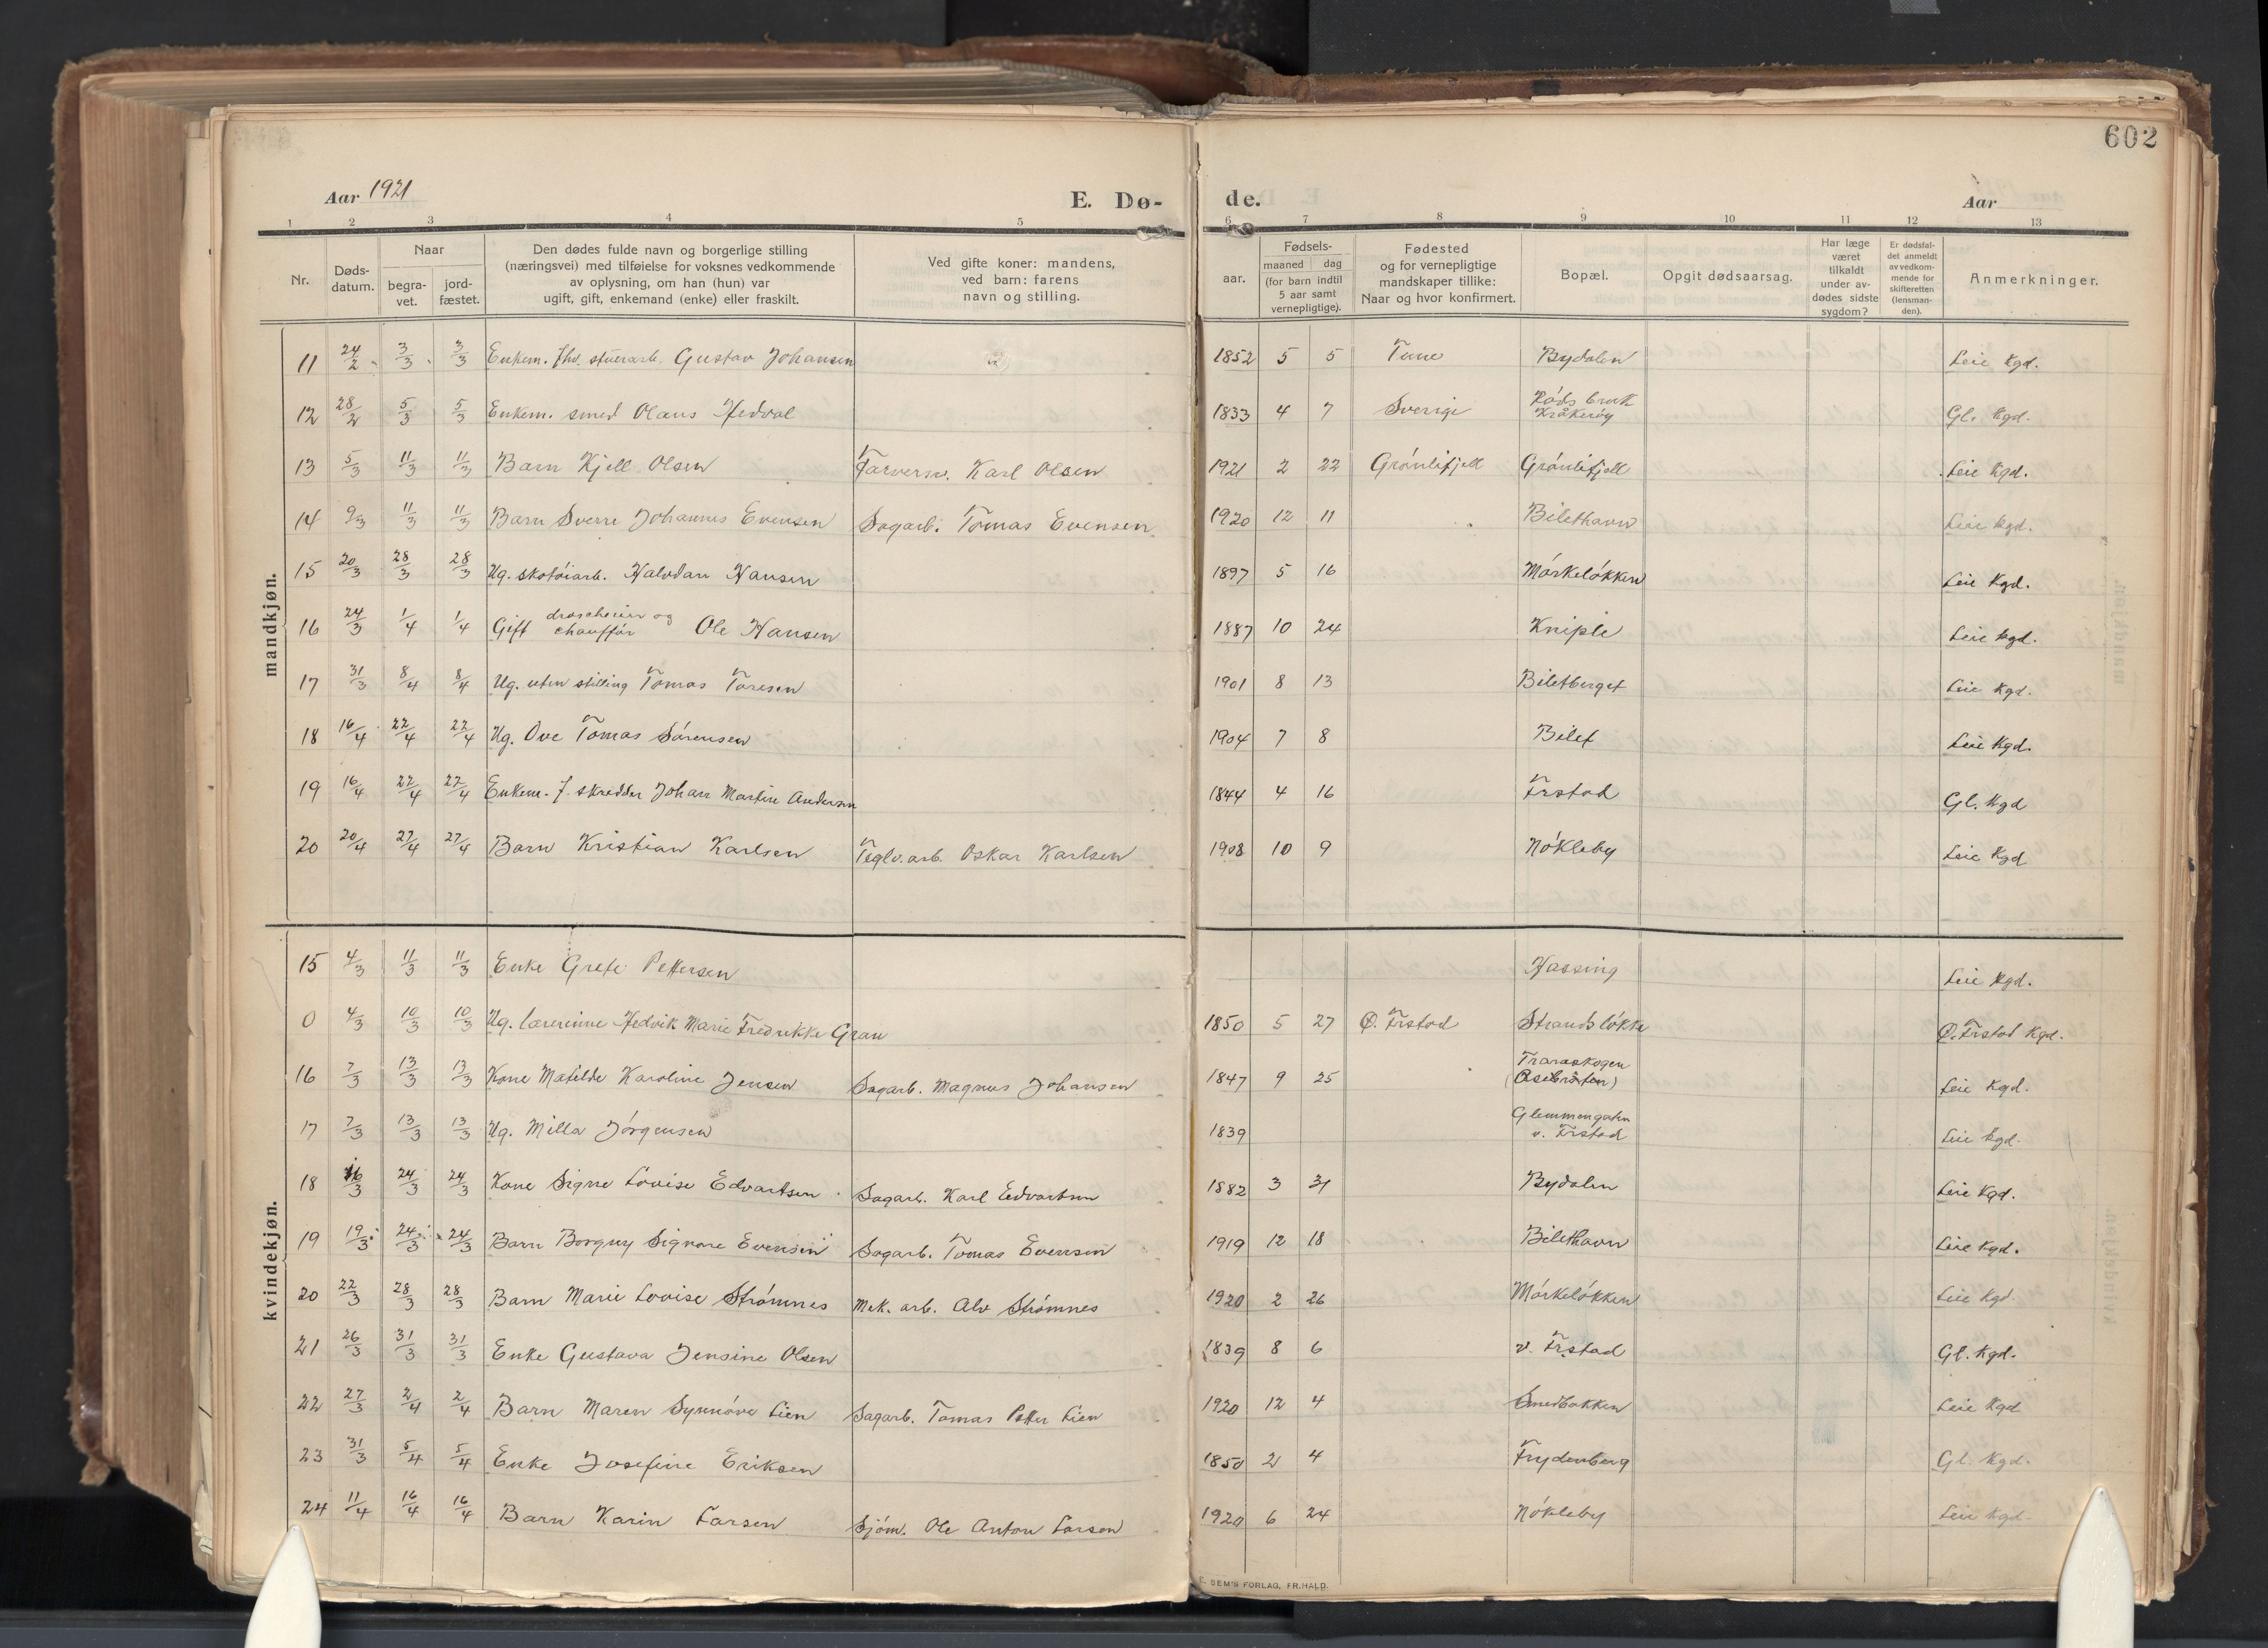 602
Aar 1921 E. Dø- de. Aar
1 2 3 4 5 6 7 8 9 10 11 12 13
Nr. Døds-datum. Naar begra-vet. jord-fæstet. Den dødes fulde navn og borgerlige stilling (næringsvei) med tilføielse for voksnes vedkommende av oplysning, om han (hun) var ugift, gift, enkemand (enke) eller fraskilt. Ved gifte koner: mandens, ved barn: farens navn og stilling. Fødsels- aar. maaned dag (for barn indtil 5 aar samt vernepligtige). Fødested og for vernepligtige mandskaper tillike: Naar og hvor konfirmert. Bopæl. Opgit dødsaarsag. Har læge været tilkaldt under av-dødes sidste sygdom? Er dødsfal-det anmeldt av vedkom-mende for skifteretten (lensman-den). Anmerkninger.
mandkjøn.
11 24/2 3/3 3/3 Enkem. fhv. stuerarb. Gustav Johansen 1852 5 5 Tune Bydalen Leie Kgd.
12 28/2 5/3 5/3 Enkem. smed Olaus Hedval 1833 4 7 Sverige Råds bruk Kråkerøy Gl. Kgd.
13 5/3 11/3 11/3 Barn Kjell Olsen Farversv. Karl Olsen 1921 2 22 Grønlifjell Grønlifjell Leie Kgd.
14 9/3 11/3 11/3 Barn Sverre Johannes Evensen Sagarb. Tomas Evensen 1920 12 11 Bilethavn Leie Kgd.
15 20/3 28/3 28/3 Ug. skotøiarb. Halvdan Hansen 1897 5 16 Mørkeløkken Leie Kgd.
16 24/3 1/4 1/4 Gift droscheeier og chauffør Ole Hansen 1887 10 24 Kniple Leie Kgd.
17 31/3 8/4 8/4 Ug. uten stilling Tomas Toresen 1901 8 13 Biletberget Leie Kgd.
18 16/4 22/4 22/4 Ug. Ove Tomas Sørensen 1904 7 8 Bilet Leie Kgd.
19 16/4 22/4 22/4 Enkem. f. skredder Johan Martin Andersen 1844 4 16 Frstad Gl. Kgd
20 20/4 27/4 27/4 Barn Kristian Karlsen Teglv.arb. Oskar Karlsen 1908 10 9 Nøkleby Leie Kgd
kvindekjøn.
15 4/3 11/3 11/3 Enke Grete Pettersen Hassing Leie Kgd.
0 4/3 10/3 10/3 Ug. lærerinne Hedvik Marie Fredrikke Grau 1850 5 27 Ø. Frstad Strandsløkka Ø. Frstad Kgd.
16 7/3 13/3 13/3 Kone Matilde Karoline Jensen Sagarb. Magnus Johansen 1847 9 25 Traraskogen (Åsebråten) Leie Kgd.
17 7/3 13/3 13/3 Ug. Milla Jørgensen 1839 Glemmengaten v. Frstad Leie Kgd.
18 16/3 24/3 24/3 Kone Signe Lovise Edvartsen Sagarb. Karl Edvartsen 1882 3 31 Bydalen Leie Kgd.
19 19/3 24/3 24/3 Barn Borgny Signora Evensen Sagarb. Tomas Evensen 1919 12 18 Bilethavn Leie Kgd.
20 22/3 28/3 28/3 Barn Marie Lovise Strømnes Mek. arb. Alv Strømnes 1920 2 26 Mørkeløkken Leie Kgd.
21 26/3 31/3 31/3 Enke Gustava Jensine Olsen 1839 8 6 v. Frstad Gl. Kgd.
22 27/3 2/4 2/4 Barn Maren Synnøve Lien Sagarb. Tomas Petter Lien 1920 12 4 Smedbakken Leie Kgd
23 31/3 5/4 5/4 Enke Josefine Eriksen 1850 2 4 Frydenberg Gl. Kgd.
24 11/4 16/4 16/4 Barn Karin Larsen Sjøm. Ole Anton Larsen 1920 6 24 Nøkleby Leie Kgd.
E. SEM'S FORLAG, FR.HALD.